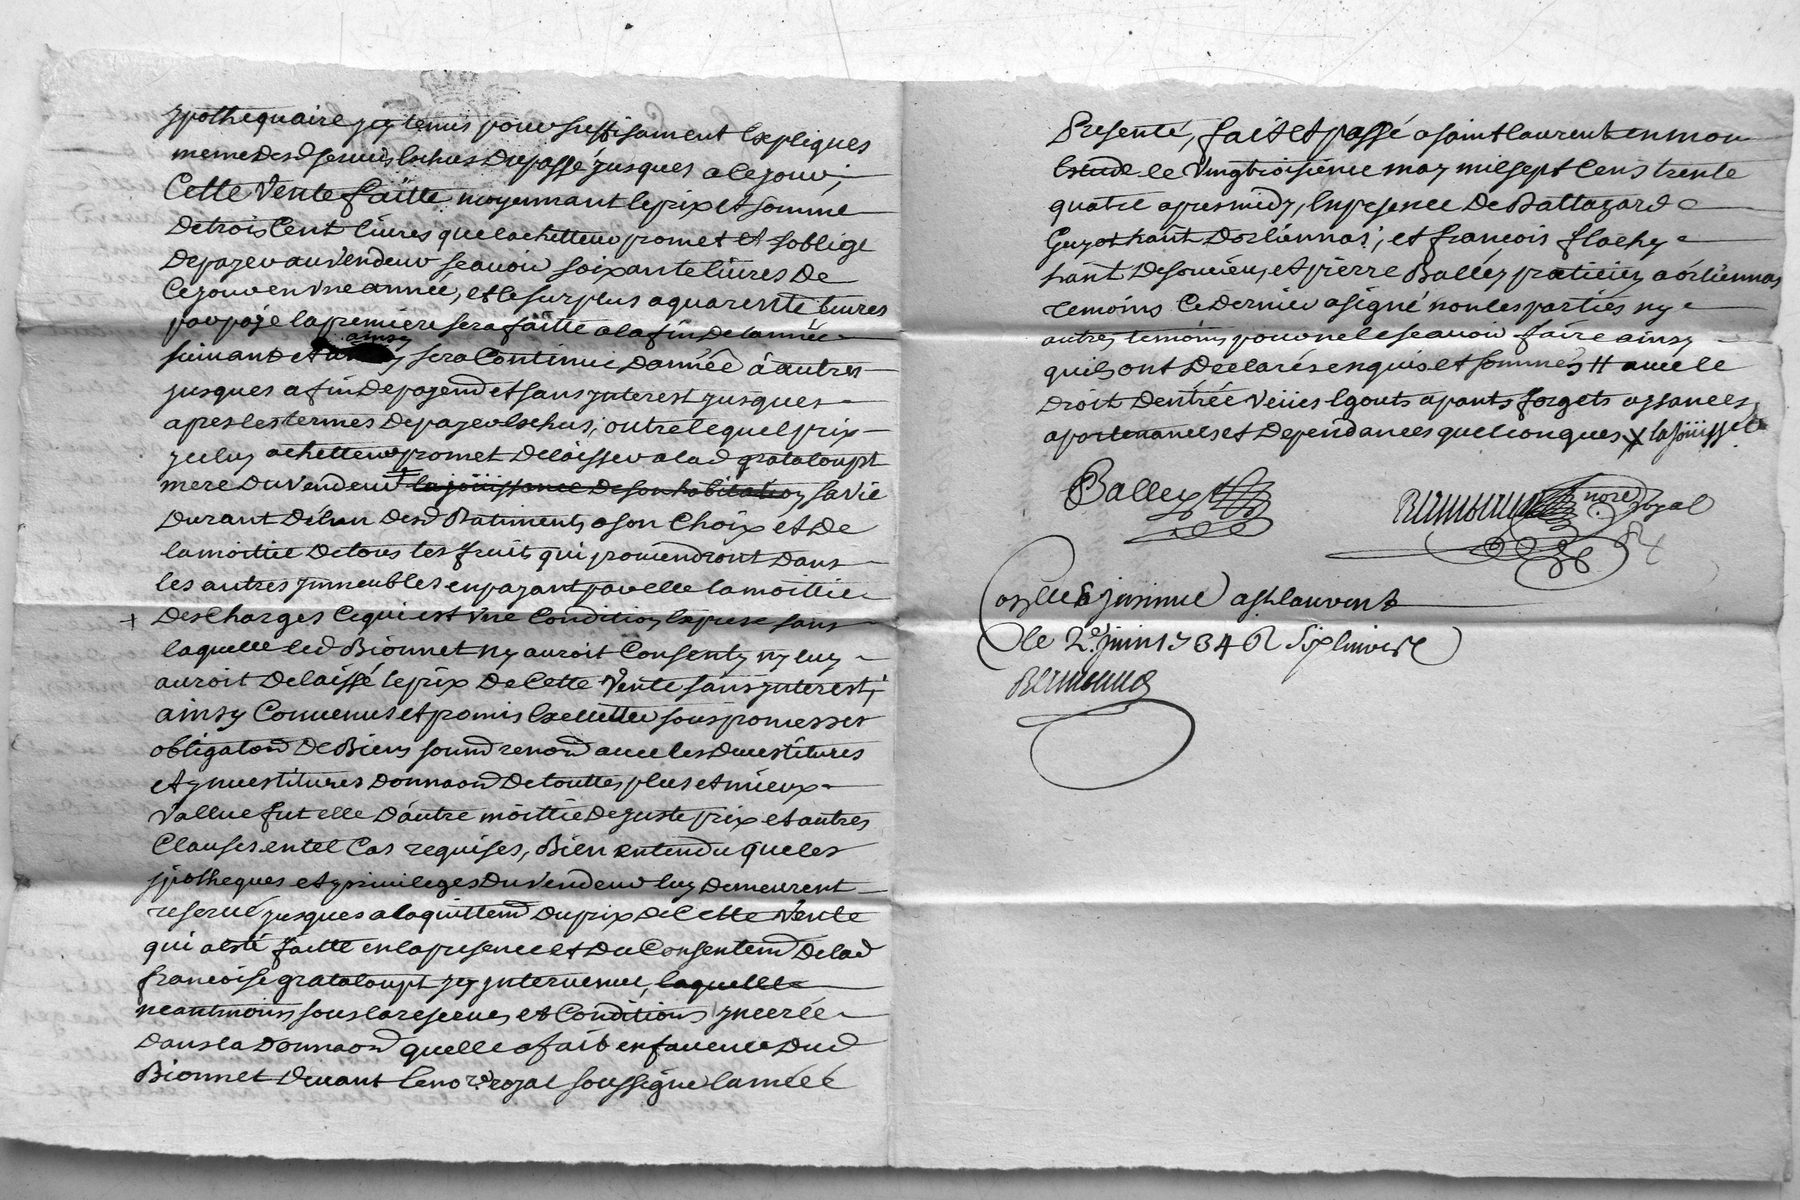 ypothequaire ycy tenus pour suffisament Expliques
meme desd servis Eschus du passé jusques a ce jour,
Cette Vente faitte moyennant le prix et somme
de trois Cent livres que lachetteur promet et soblige
de payer au vendeur scavoir soixante livres de
Ce jour en Une année, et le surplus a quarente livres
par paye la premiere sera faitte a la fin de lannée
suivante et ainsy sera Continué dannée â autres
jusques a fin de payemd et sans ynterest jusques
apres les termes de payer Eschus, outre lequel prix
yceluy achetteur promet delaisser a lad grataloupt
mere du vendeur la joüissance de son habitation sa vie
durant d'Un desd Batiments a son Choix et de
la moitie de tous les fruits qui proviendront dans
les autres ymmeubles en payant par elle la moittie
des Charges Ce qui est Une Condition Expresse sans
laquelle led Bionnet ny auroit Consenty ny luy
auroit delaissé le prix de Cette Vente sans ynterest,
ainsy Convenus et promis Exellutter sous promesses
obligaond de Biens soumd renond avec les devestitures
et ynvestitures donnaond de touttes plus et mieux
Vallue fut elle d'autre moittié de juste prix et autres
Clauses en tel Cas requises, Bien entendu que les
ypotheques et privileges du vendeur luy demeurent
reservé jusques a la quittend du prix de Cette Vente
qui a esté faitte en la presence et du Consentemd de lad
francoise grataloupt ycy yntervenue, laquelle
neantmoins sous la reserves et Conditions ynserée
dans la donnaond quelle a fait en faveur dud
Bionnet devant le nore royal soussigné lannéé
Presente, fait et passé a saint laurent en mon
Estude le Vingtroisieme may mil sept Cens trente
quatre apres midy, En presence de Baltazard
Guyot hant dorliennas, et francois flachy
hant de soucieu, et pierre Balley praticien a orliennas
temoins Ce dernier a signé non les parties ny
autres temoins pour ne le scavoir faire ainsy
quils ont declarés enquis et sommés # avec le
droit dentrée veües Egouts apants forgets aysances
apartenances et dependances quelconques X la joüissce
Balley
nore royal
le 2e juin 1734